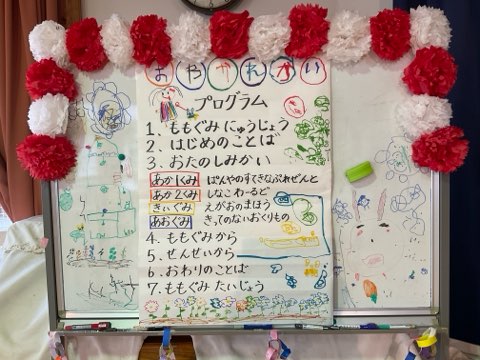 おやわれかい
プログラム
1. ももぐみ にゅうじょう
2. はじめのことば
3. おたのしみかい
あか1くみ ぱんやのすてきなぷれぜんと
あか2くみ しなこわーるど
きぃぐみ えがおのまほう
あおぐみ きってのないおくりもの
4. ももぐみから
5. せんせいから
6. おわりのことば
7. ももぐみ たいじょう